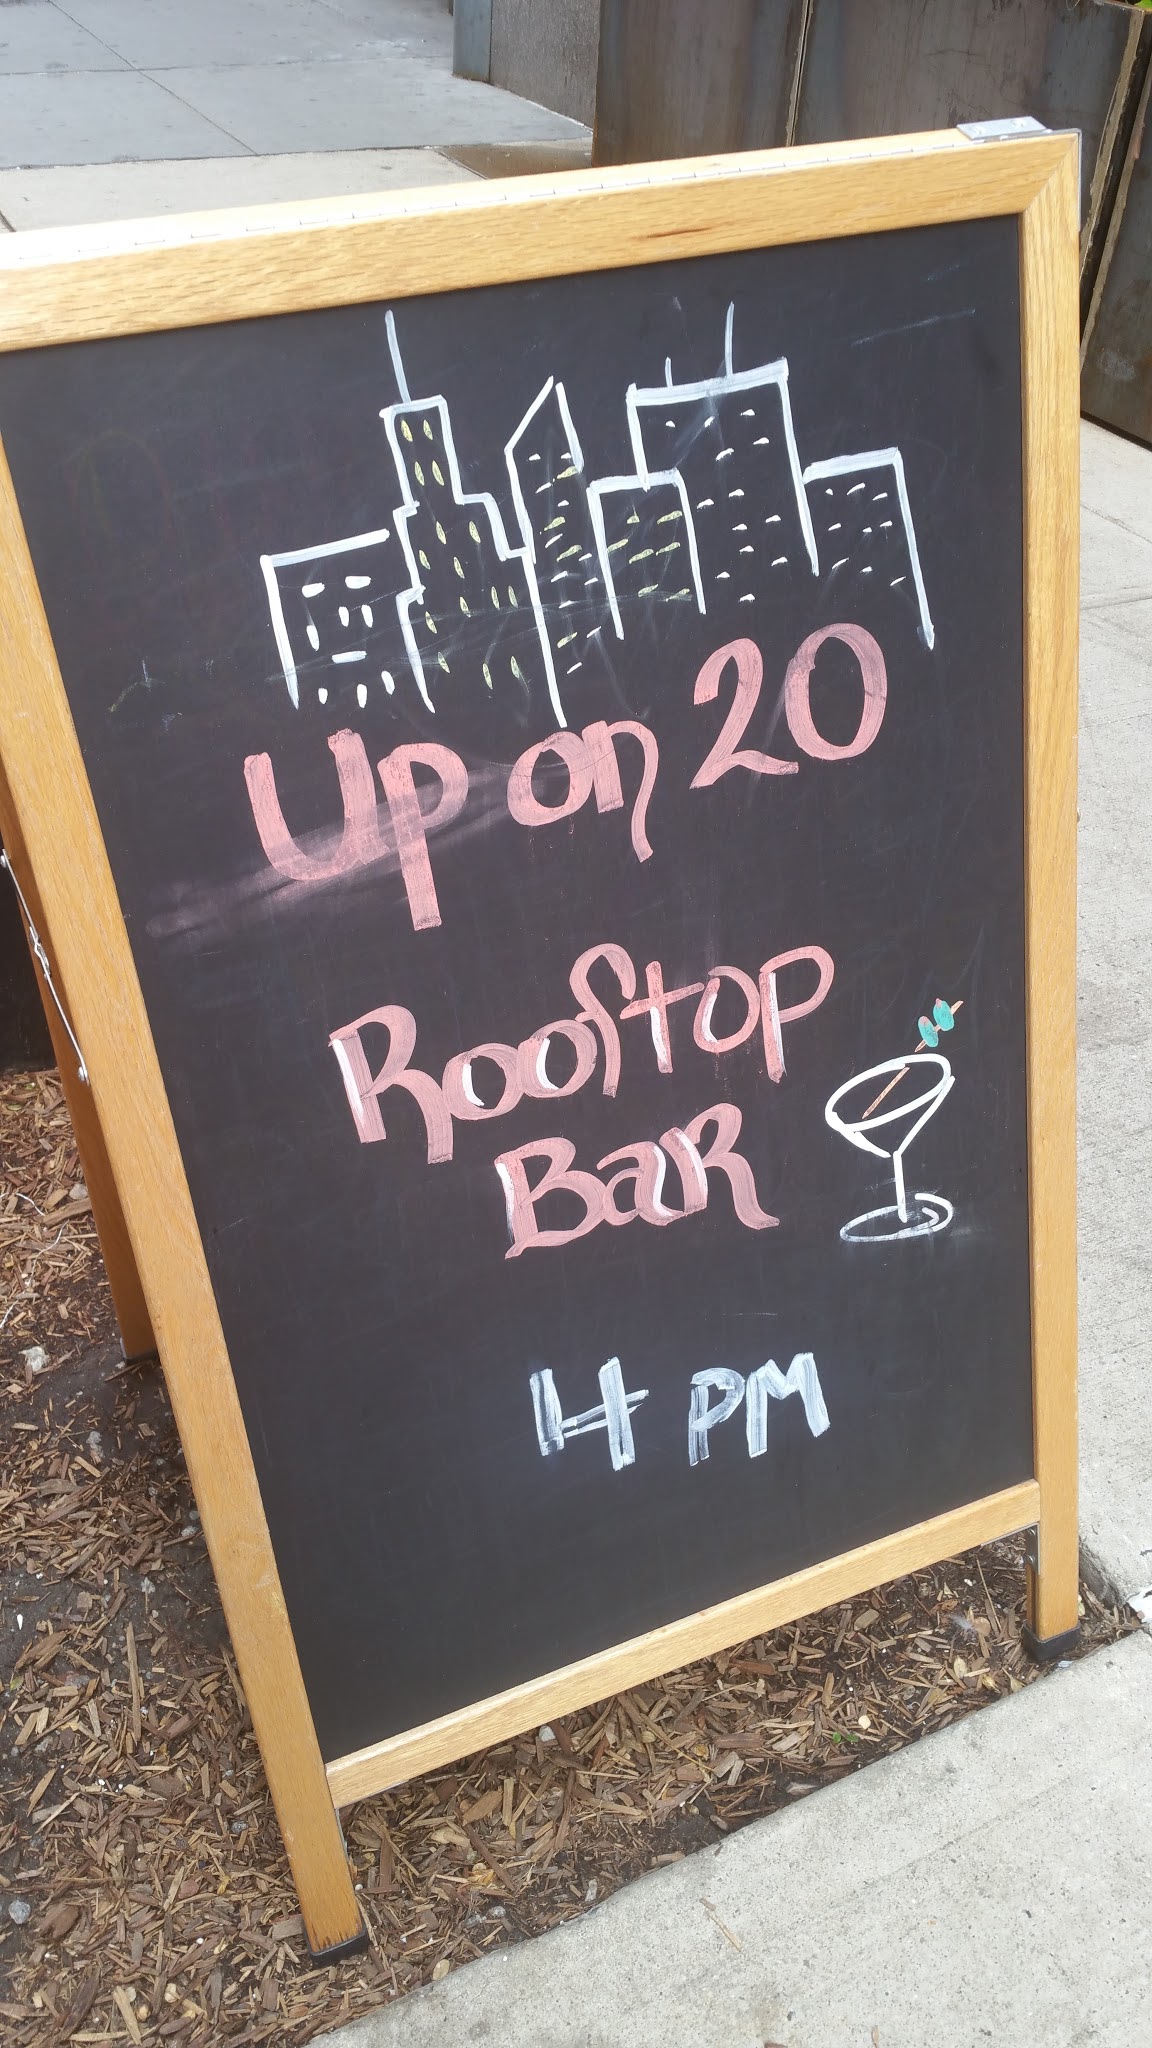 Up on 20
Rooftop
Bar
4 PM